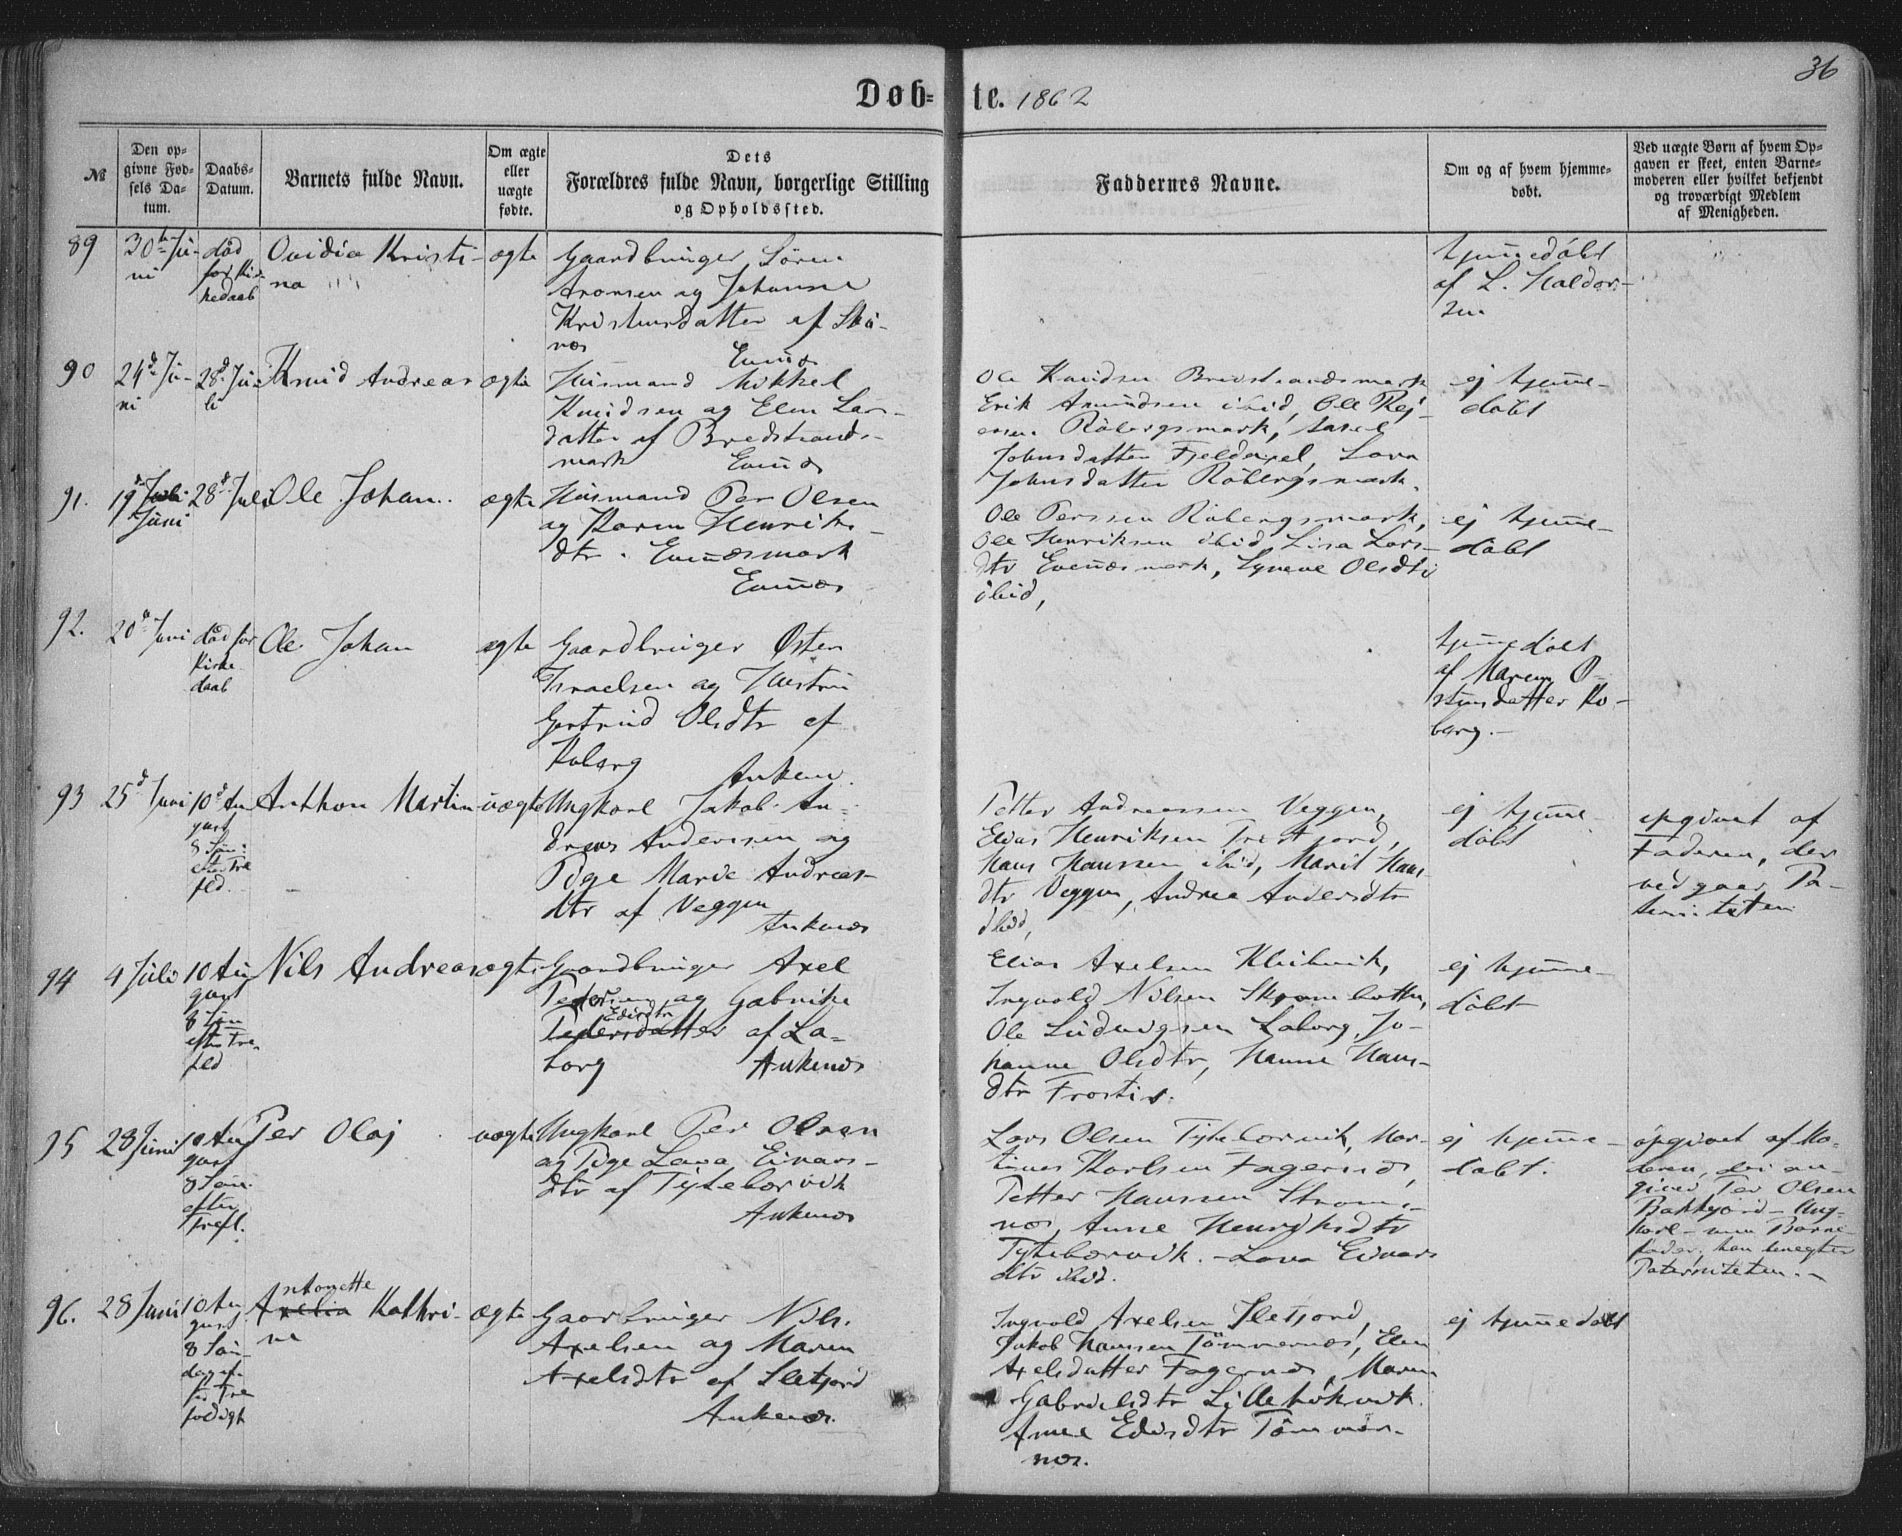 36
Døb= te. 1862
№
Den op-
givne Fød-
sels Da-
tum.
Daabs-
Datum.
Barnets fulde Navn.
Om ægte
eller
uægte
fødte.
Dets
Forældres fulde Navn, borgerlige Stilling
og Opholdssted.
Faddernes Navne.
Om og af hvem hjemme-
døbt.
Ved uægte Børn af hvem Op-
gaven er skeet, enten Barne-
moderen eller hvilket bekjendt
og troværdigt Medlem
af Menigheden.
89
30te Ju-
ni
død
før Kir-
kedaab
Ovidia Kristi-
na
ægte
Gaardbruger Sören
Aronsen og Johanna
Kristensdatter af
Evenæs
hjemmedöbt
af L. Haldor-
sen
90
24d Ju-
ni
28d Ju-
li
Knud Andreas
ægte
Husmand Mikkel
Knudsen og Elen Lars-
datter af Bredstrands-
mark Evenæs
Ole Knudsen Bredstrandsmark
Erik Amundsen ibid, Ole
Röbergsmark,
Johnsdatter Lava
Johnsdatter Röbergsmark.
ej hjemme-
döbt
91.
19d Juli
Juni
28d Juli
Ole Johan.
ægte
Husmand Per Olsen
og Karen Henriks-
dtr. Evenæsmark
Evenæs
Ole Perssen Röbergsmark,
Ole Henriksen ibid, Lisa Lars-
dtr Evenæsmark, Olsdtr
ibid,
ej hjemme-
döbt
92.
20d Juni
död før
Kirke-
daab
Ole Johan
ægte
Gaardbruger Østen
Israelsen og Hustru
Gertrud Olsdtr af
Roberg
Ankenæs
hjemmedöbt
af Maren Ø-
stensdatter Ro-
berg.
93
25d Juni
10d Au-
gust
8 Sön:
efter Tre
fld.
Anthon Martin
uægte
Ungkarl Jakob An-
dreas Anderssen og
Pige Marie Andreas-
dtr af Veggen
Ankenæs
Petter Andreassen Veggen,
Elias Henriksen Fjord,
Hans Hanssen ibid, Marit Hans-
dtr Veggen, Andrea Andersdtr
ibid,
ej hjemme-
döbt
opgivet af
Faderen, der
vedgaar Pa-
terniteten
94
4 Juli
10 Au-
gust
8 Sön
efter Tre-
fld
Nils Andreas
ægte
Gaardbruger Axel
Pedersen og Gabrikke
Edisdtr
Pedersdatter af La-
borg Ankenæs
Elias Axelsen
Ingvold Nilsen
Ole Ludvigsen Laborg, Jo-
hanne Olsdtr, Hanne Hans-
dtr
ej hjemme-
döbt
95
28 Juni
10 Au-
gust
8 Sön.
efter
Trefl.
Per Olaj
uægte
Ungkarl Per Olsen
og Pige Lava Eivars-
dtr af Tytebærvik
Ankenæs
Lars Olsen Tytebærvik, Mar-
tinus Karlsen Fagernæs,
Petter Hanssen Strøm-
næs, Anne Henriksdtr
Tytebærvik. - Lava Eivars
dtr ibid.
ej hjemme-
döbt.
opgivet af Mo-
deren, der an-
giver Per Olsen
Bakkjord - Ung-
karl - som Barne
fader, han benegter
Paterniteten. -
96.
28 Juni
10 Au-
gust
8 Sön-
dag ef-
ter Tre
foldigh
ntonette
Axelia Kathri-
na
ægte
Gaardbruger Nils
Axelsen og Maren
Axelsdtr af Sletjord
Ankenæs.
Ingvold Axelsen Sletjord,
Jakob Hanssen Tömmernæs, Elen
Axelsdatter Fagernæs, Maren
Gabrielsdtr
Anne Edisdtr Tömmer-
næs.
ej hjemmedöbt